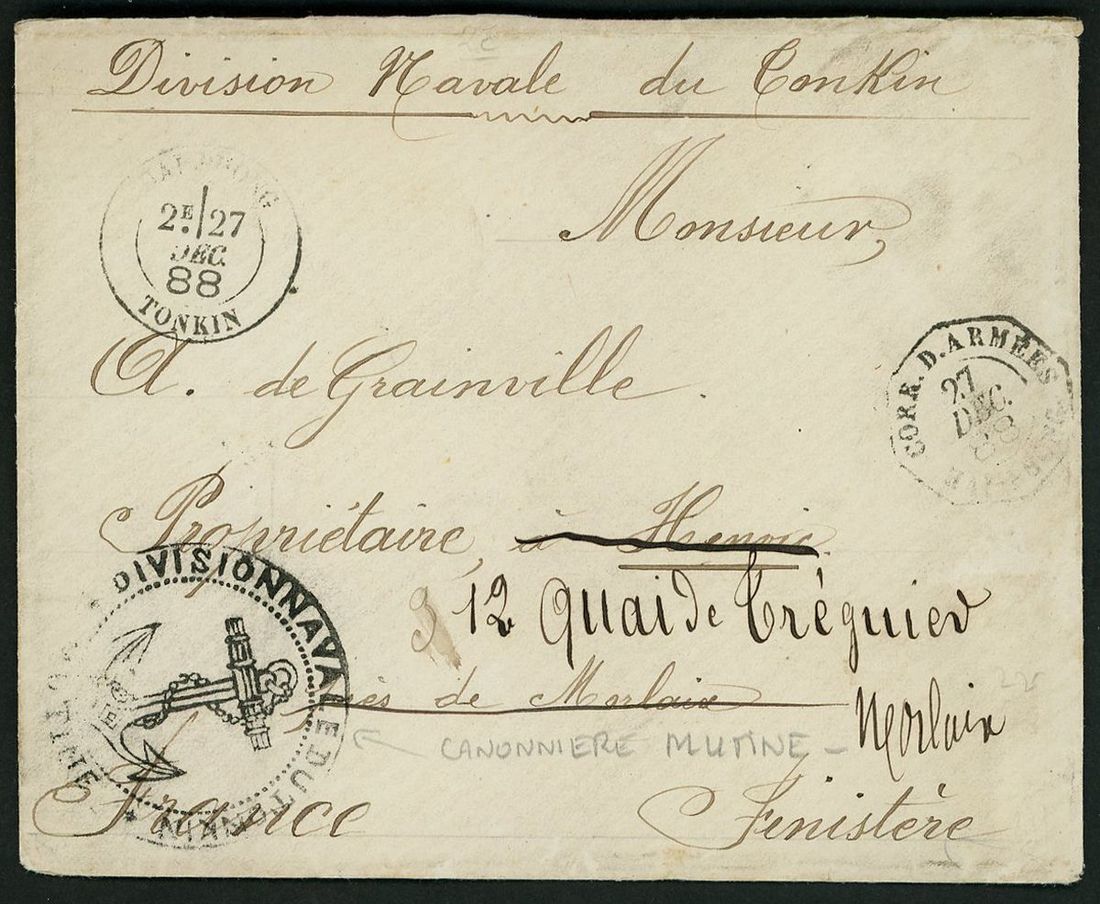 Division Navale du Tonkin
Monsieur
2E 27
DEC.
88
TONKIN
CORR. D. ARMÉES
27
DEC.
88
A. de Grainville.
Propriétaire, à Henvic.
12 Quai de Tréguier
près de Morlaix
Morlaix
DIVISION NAVALE DU TONKIN
CANONNIERE MUTINE
France
Finistère